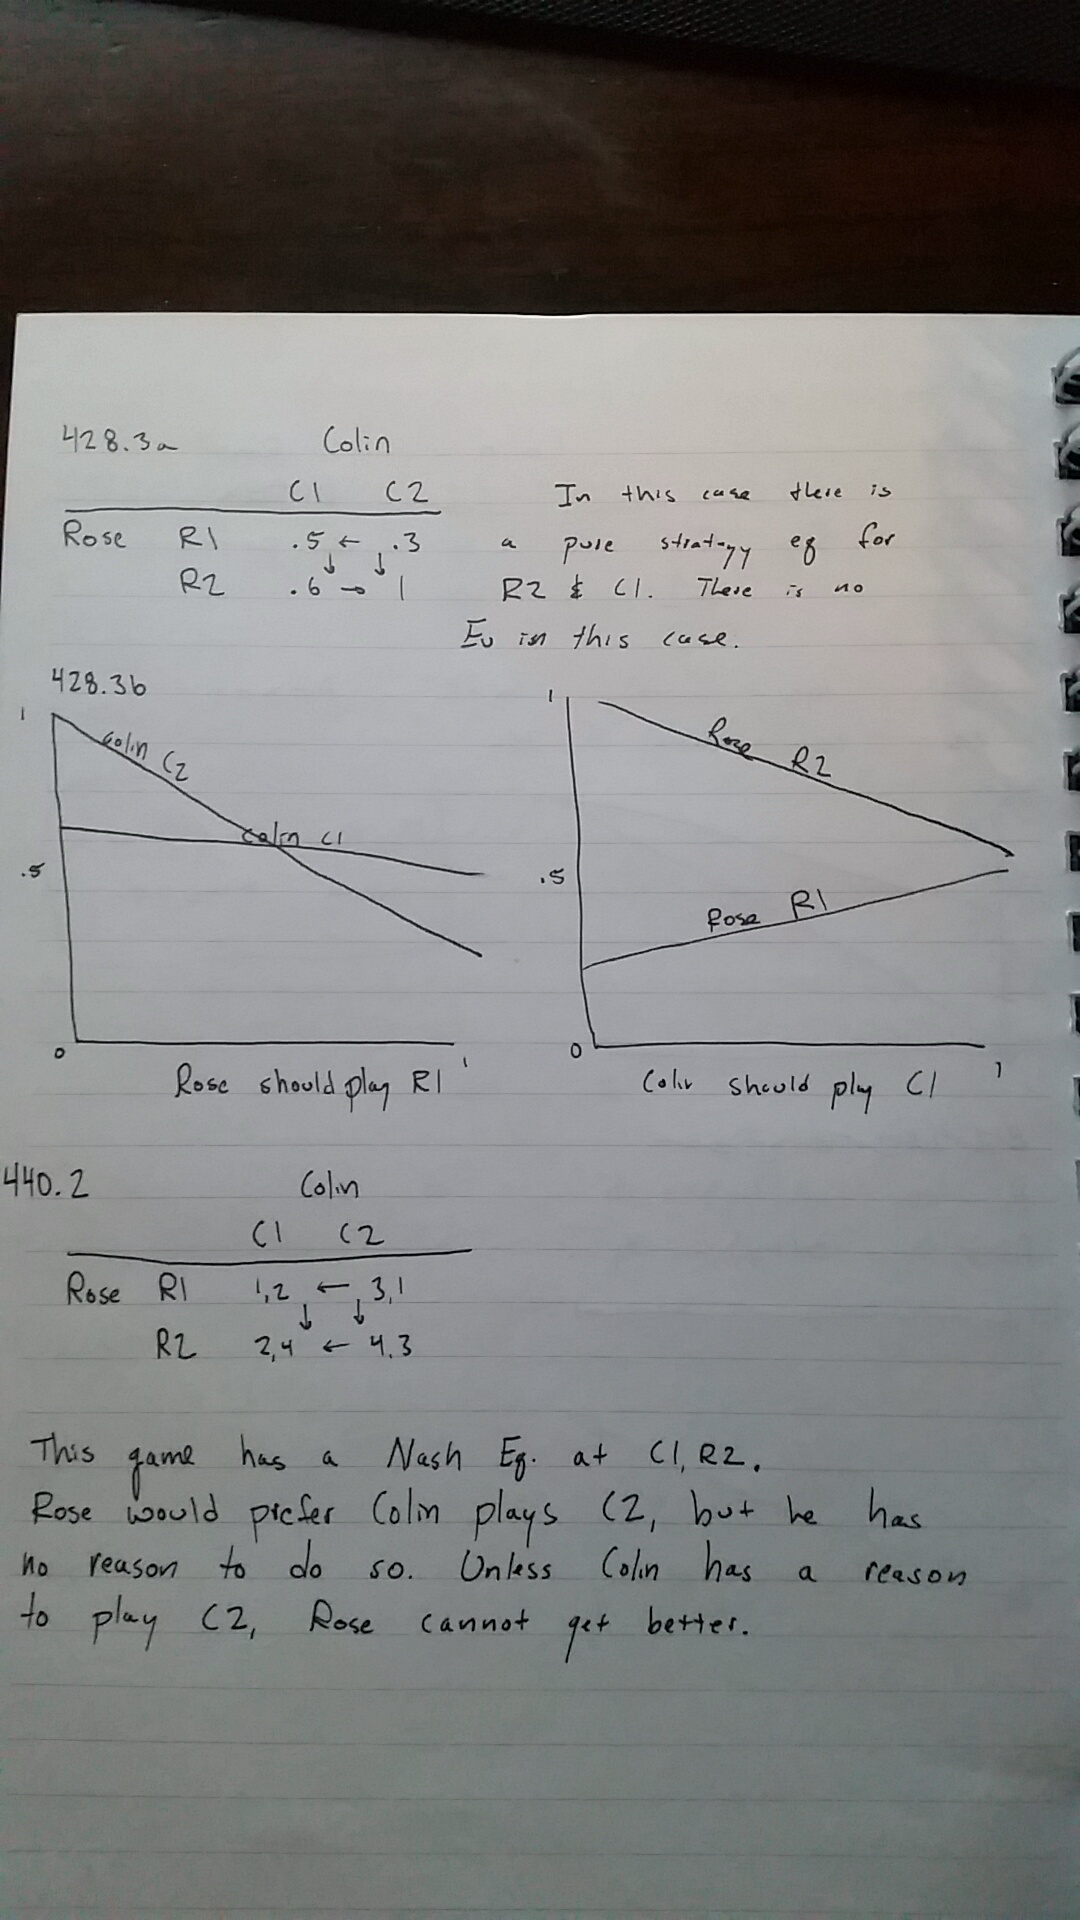 428.3a Colin
C1 C2
Rose R1 .5 ← .3
↓ ↓
R2 .6 → 1
In this case there is
a pure strategy eq for
R2 & C1. There is no
Ev in this case.
428.3b
1
Colin C2
Colin C1
.5
0
1
Rose should play R1
1
Rose R2
.5
Rose R1
0
1
Colin should play C1
440.2 Colin
C1 C2
Rose R1 1,2 ← 3,1
↓ ↓
R2 2,4 ← 4,3
This game has a Nash Eq. at C1, R2.
Rose would prefer Colin plays C2, but he has
no reason to do so. Unless Colin has a reason
to play C2, Rose cannot get better.